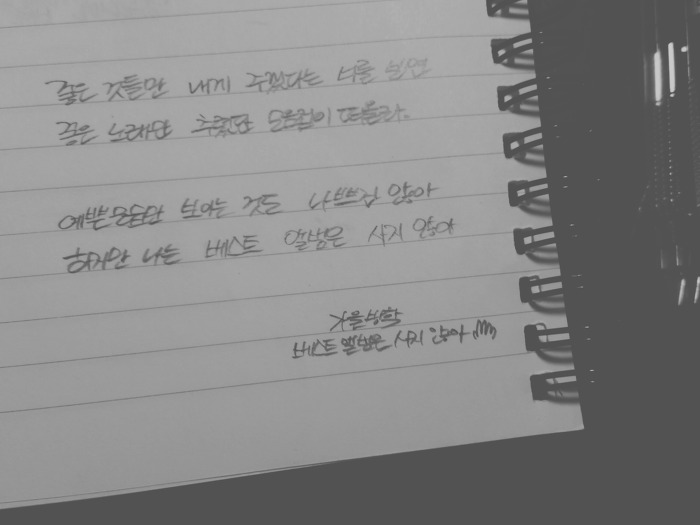 좋은 것들만 내게 주겠다는 너를 보면
좋은 노래만 추렸단 모음집이 떠올라.
예쁜 모습만 보이는 것도 나쁘진 않아
하지만 나는 베스트 앨범은 사지 않아
가을방학
베스트 앨범은 사지 않아